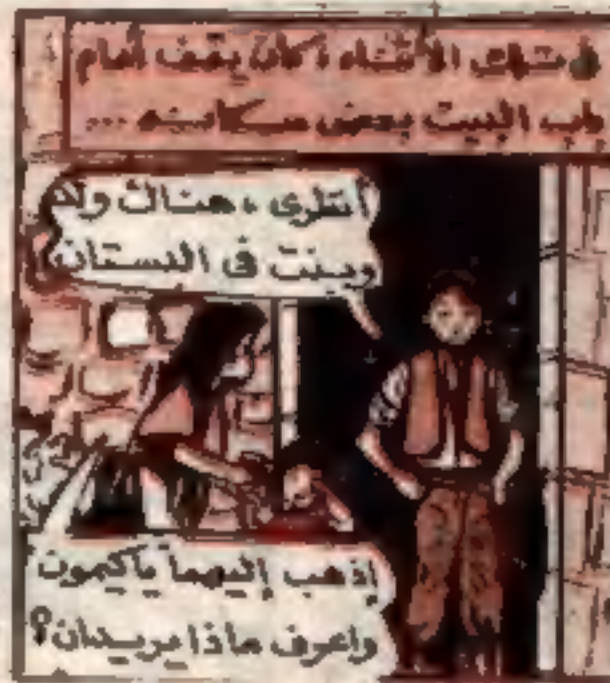 فى تلك الأثناء، كان يقف أمام
باب البيت بعض سكانه ...
أنظرى، هناك ولد
وبنت فى البستان
إذهب إليهما ياكيمون
واعرف ماذا يريدان؟